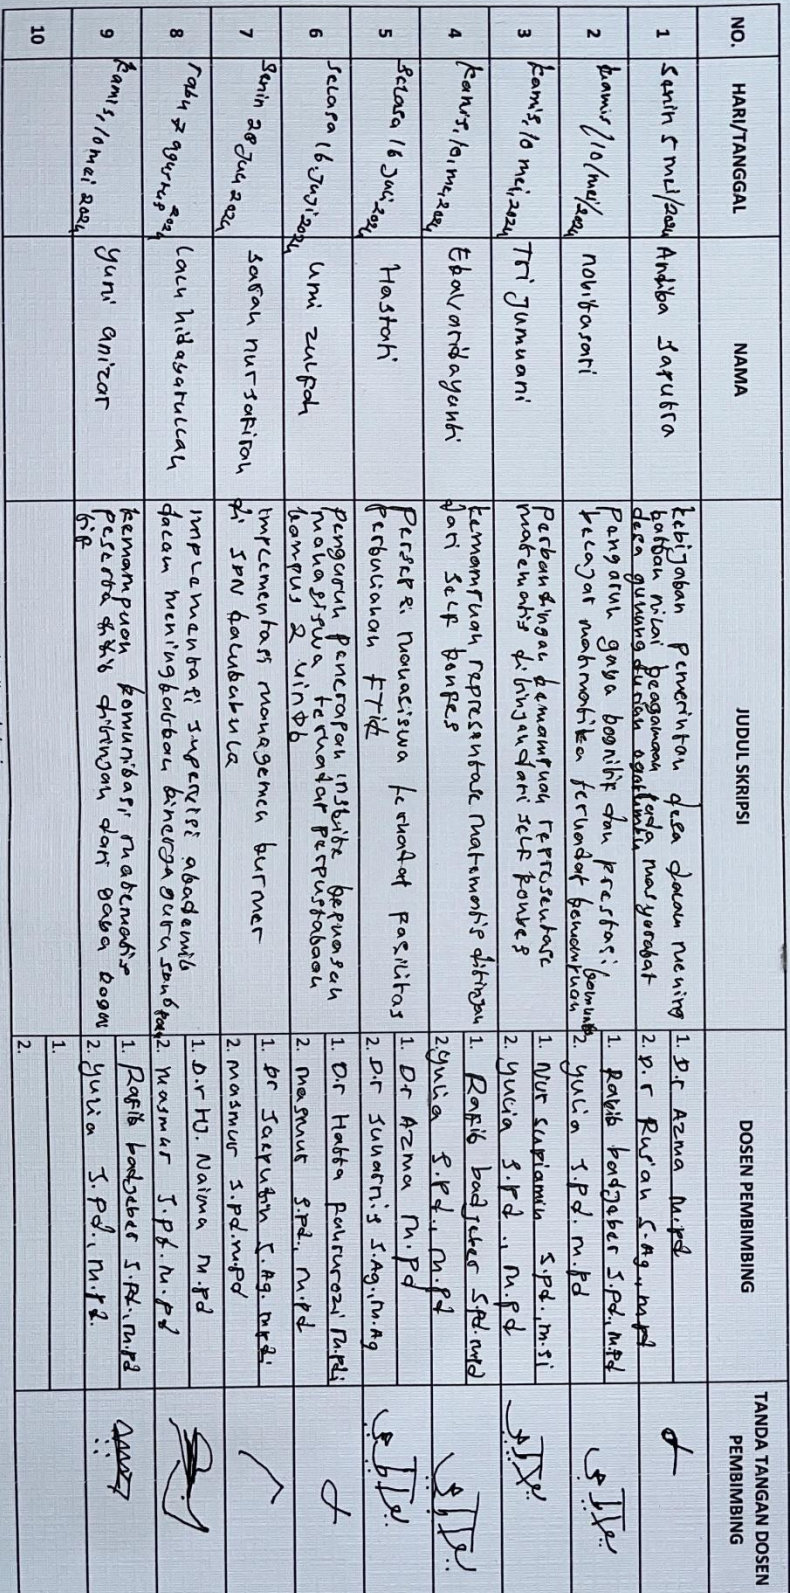 NO.
HARI/TANGGAL
NAMA
JUDUL SKRIPSI
DOSEN PEMBIMBING
TANDA TANGAN DOSEN
PEMBIMBING
1
Senin 5 mei/2024
Andika Saputra
kebijakan pemerintah desa dalam mening
katkan nilai keagamaan pada masyarakat
desa gunung durian
1. D.r Azma M.pd
2. D.r Rus'an S.Ag., M.pd
2
kamis/10/mei/2024
novitasari
Pengaruh gaya kognitif dan prestasi
belajar matmatika terhadap kemampuan
1. Rafik badjeber S.pd., M.pd
2. yulia S.pd. M.pd
3
kamis, 10 mei, 2024
Tri Jumuani
Perbandingan kemampuan representase
matematis ditinjau dari self konsep
1. Nur supiamin S.pd., M.si
2. yulia S.pd., M.pd
4
kamis, 10, mei, 2024
Ekavaridayanti
kemampuan representase matematis ditinjau
dari self konpes
1. Rafik badjeber S.pd. M.pd
2. yulia S.pd., M.pd
5
selasa 16 Juli 2024
Hastati
Persepsi mahasiswa terhadap fasilitas
perkuliahan FTIK
1. Dr Azma M.pd
2. D.r Suharnis S.Ag., M.Ag
6
selasa 16 Juli 2024
umi zulfah
pengaruh penerapan
mahasiswa terhadap perpustakaan
kampus 2
1. D.r Hatta fakhrurozi M.pdi
2. masmur S.pd., M.pd
7
Senin 28 Juli 2024
sarah nur safirah
implementasi managemen
di SPN
1. Dr Saepudin S.Ag. M.pdi
2. masmur S.pd. M.pd
8
rabu 7 2024
Lalu hidayatullah
implementasi supervisi akademik
dalam meningkatkan kinerja guru
1. D.r Hj. Naima M.pd
2. masmur S.pd. M.pd
9
kamis, 10 mei 2024
yuni anizar
kemampuan komunikasi matematis
peserta didik ditinjau dari gaya kogni
tif
1. Rafik badjeber S.Pd., M.pd
2. yulia S.pd., M.pd.
10
1.
2.